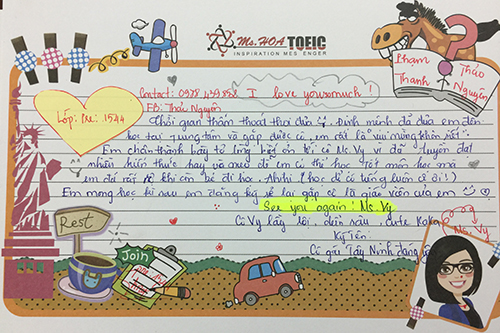 Ms.HOA TOEIC
INSPIRATION MESSENGER
Phạm Thanh Thảo Nguyên
Contact: 0978 459 858
I love you so much!
FB: Thảo Nguyên
Lớp: Pre: 1574
Thời gian thấm thoát thoi đưa. Định mệnh đã đưa em đến
học tại trung tâm và gặp được cô, em rất là vui mừng khôn xiết.
Em chân thành bày tỏ lòng biết ơn tới cô Ms. Vy vì đã truyền đạt
nhiều kiến thức hay và mẹo để em có thể học tốt môn học mà
em đã rất khi còn bé đi học. (học dễ có từng luôn cô ơi!)
Em mong học kì sau em đăng ký sẽ lại gặp cô là giáo viên của em
See you again! Ms. Vy
Cô Vy lầy lội, diễn sâu, cute Kaka
Ký tên
Cô gái Tây Ninh đáng
Ms. Vy
Rest
Join